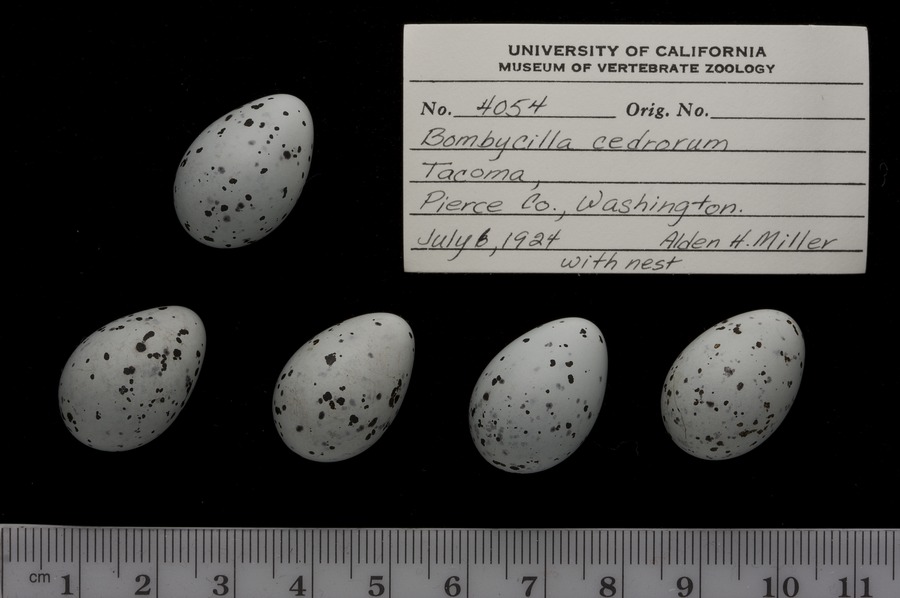 UNIVERSITY OF CALIFORNIA
MUSEUM OF VERTEBRATE ZOOLOGY
No. 4054 Orig. No.
Bombycilla cedrorum
Tacoma,
Pierce Co., Washington.
July 6, 1924 Alden H. Miller
with nest
cm 1 2 3 4 5 6 7 8 9 10 11